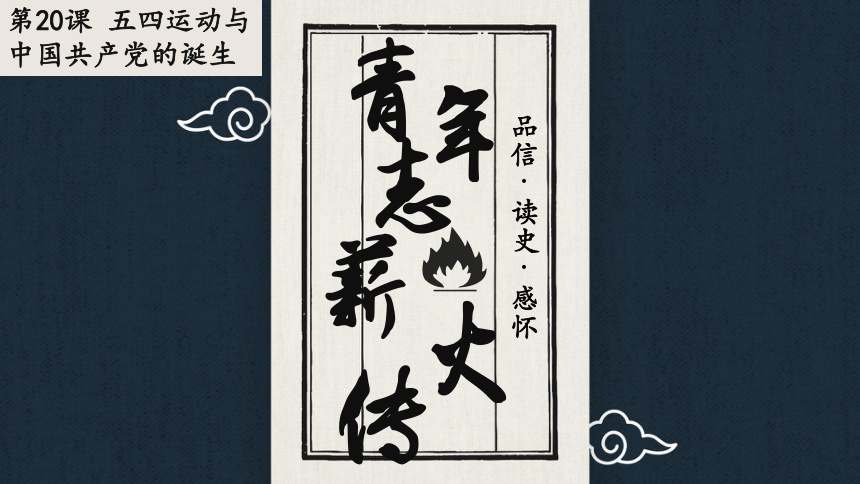 第20课 五四运动与
中国共产党的诞生
青年志
薪火传
品信·读史·感怀